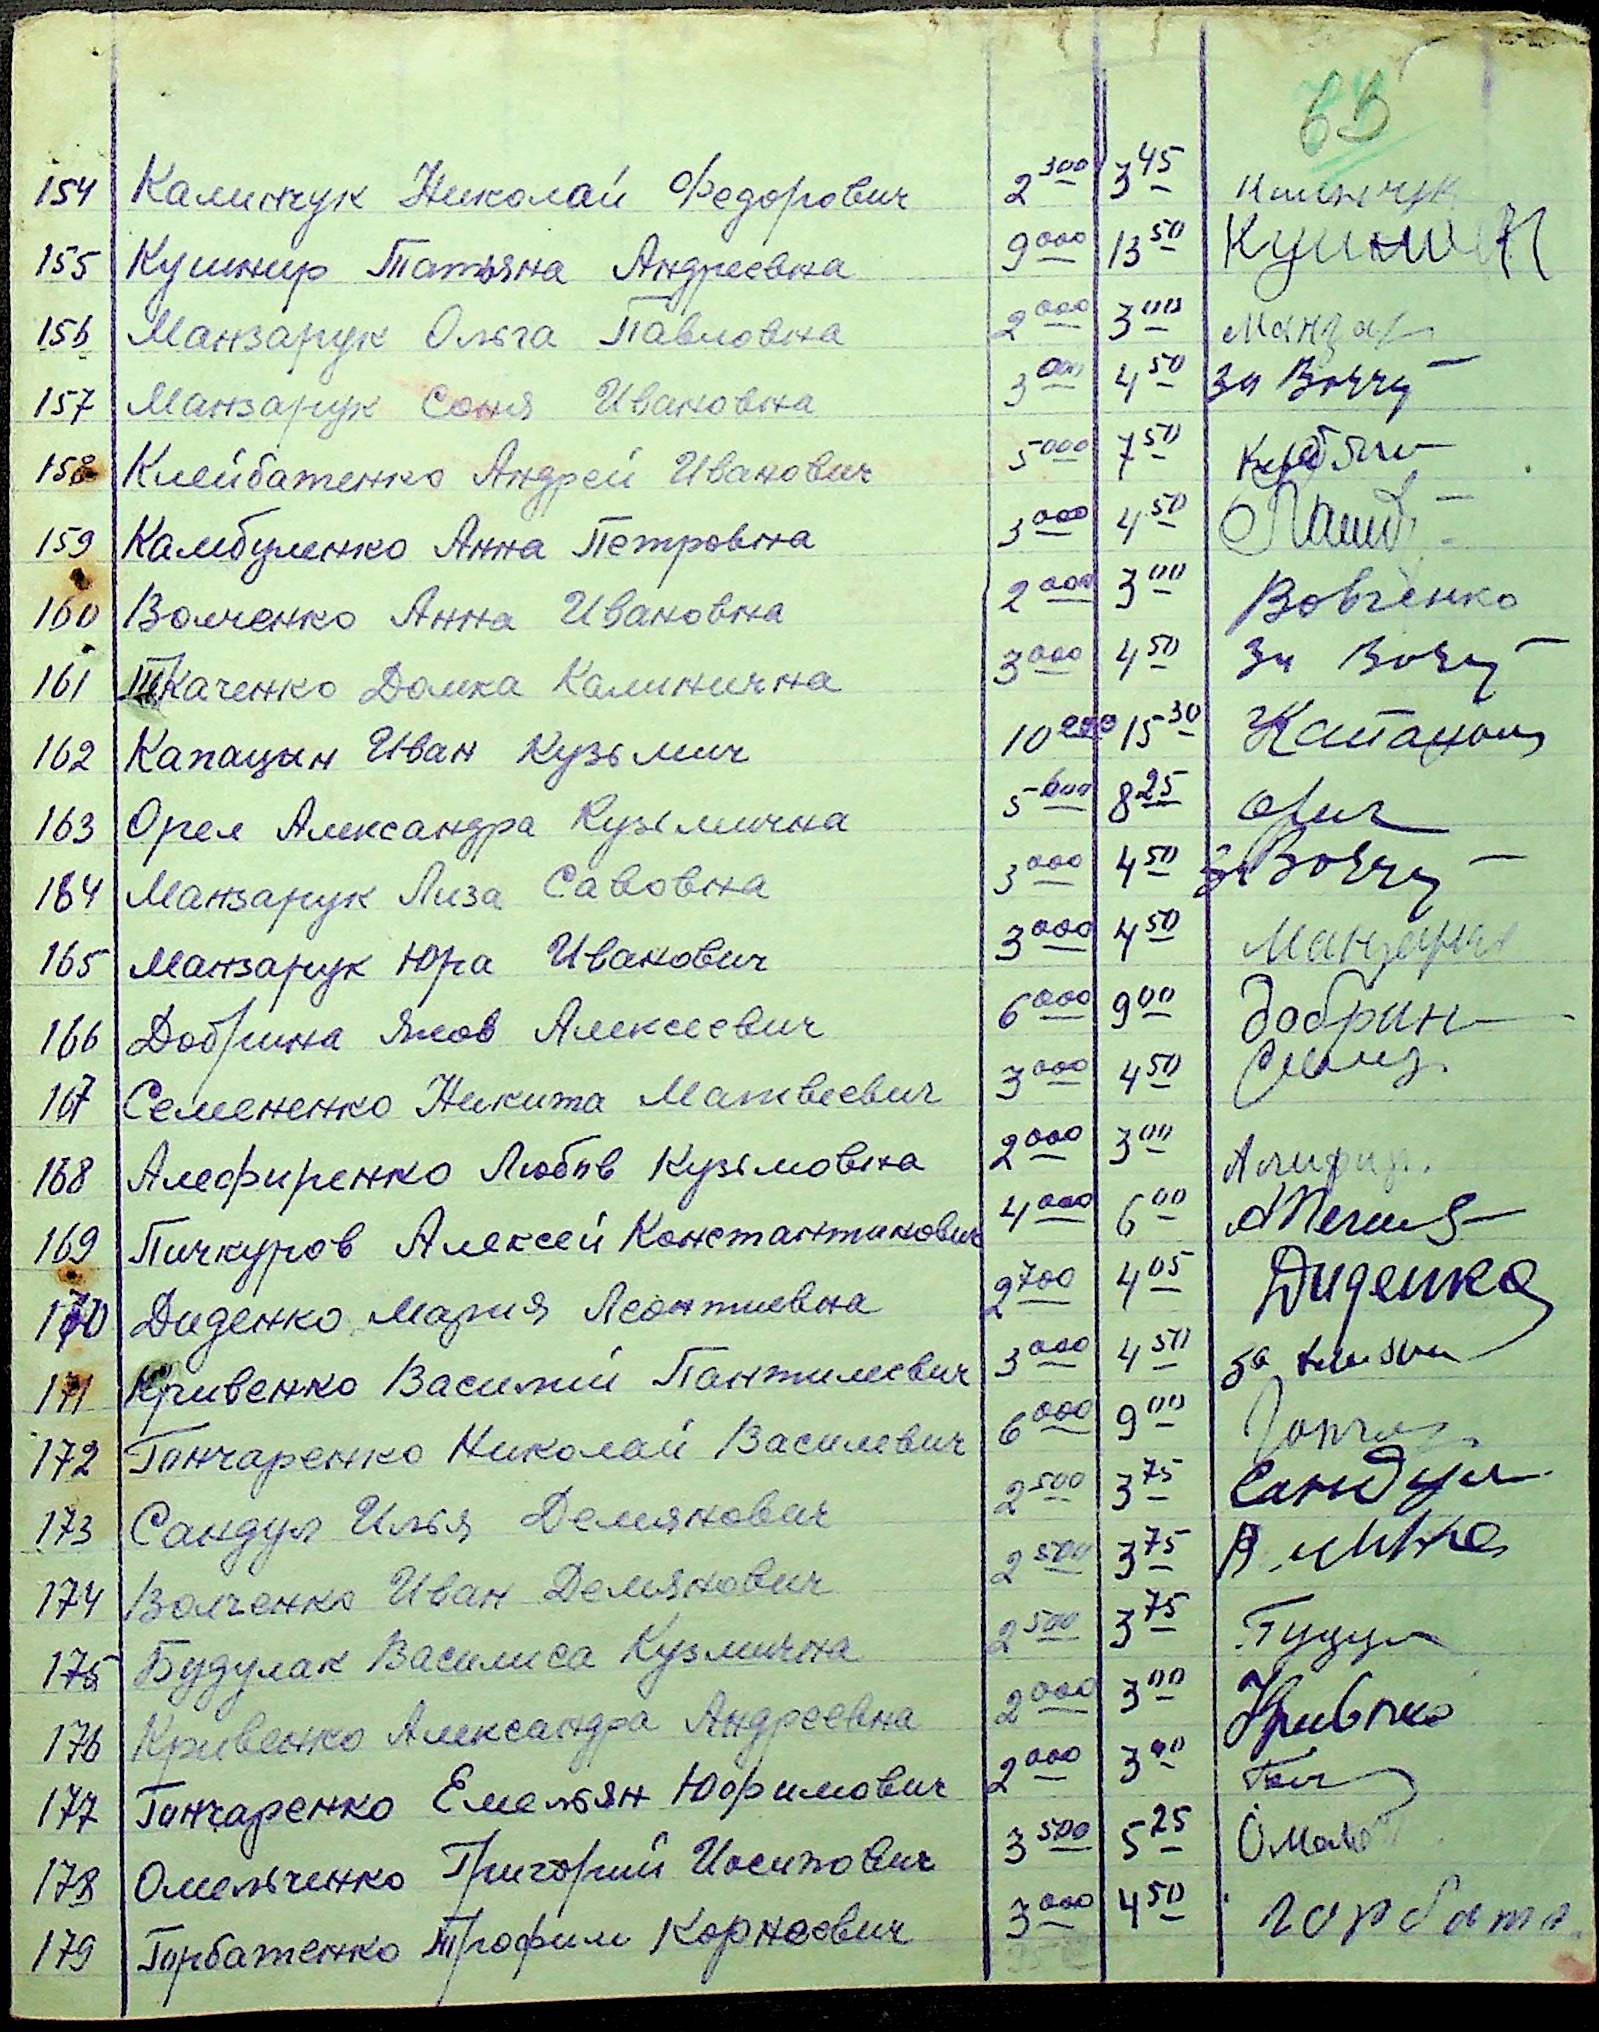 154 Калинчук Николай Федорович 2 300 3 45
155 Кушнир Татьяна Андреевна 9 000 13 50 Кушнир
156 Манзарук Ольга Павловна 2 000 3 00 Манзар
157 Манзарук Соня Ивановна 3 000 4 50 За
158 Клейбатенко Андрей Иванович 5 000 7 50
159 Камбуленко Анна Петровна 3 000 4 50
160 Волченко Анна Ивановна 2 000 3 00 Вовченко
161 Ткаченко Домка Калинична 3 000 4 50 За
162 Капацын Иван Кузьмич 10 200 15 30
163 Орел Александра Кузьмична 5 600 8 25
164 Манзарук Лиза Савовна 3 000 4 50 За
165 Манзарук Юра Иванович 3 000 4 50 Манзарук
166 Добрина Яков Алексеевич 6 000 9 00 Добрин
167 Семененко Никита Матвеевич 3 000 4 50
168 Алефиренко Любов Кузьмовна 2 000 3 00
169 Пичкуров Алексей Константинович 4 000 6 00
170 Диденко Мария Леонтиевна 2 700 4 05 Диденко
171 Кривенко Василий Пантилеевич 3 000 4 50 за
172 Гончаренко Николай Василевич 6 000 9 00
173 Сандул Илья Демянович 2 500 3 75 Сандул
174 Волченко Иван Демянович 2 500 3 75
175 Будулак Василиса Кузмична 2 500 3 75
176 Кривенко Александра Андреевна 2 000 3 00
177 Гончаренко Емельян Юфимович 2 000 3 00
178 Омельченко Григорий Иосипович 3 500 5 25
179 Горбатенко Трофим Корнеевич 3 000 4 50 Горбат